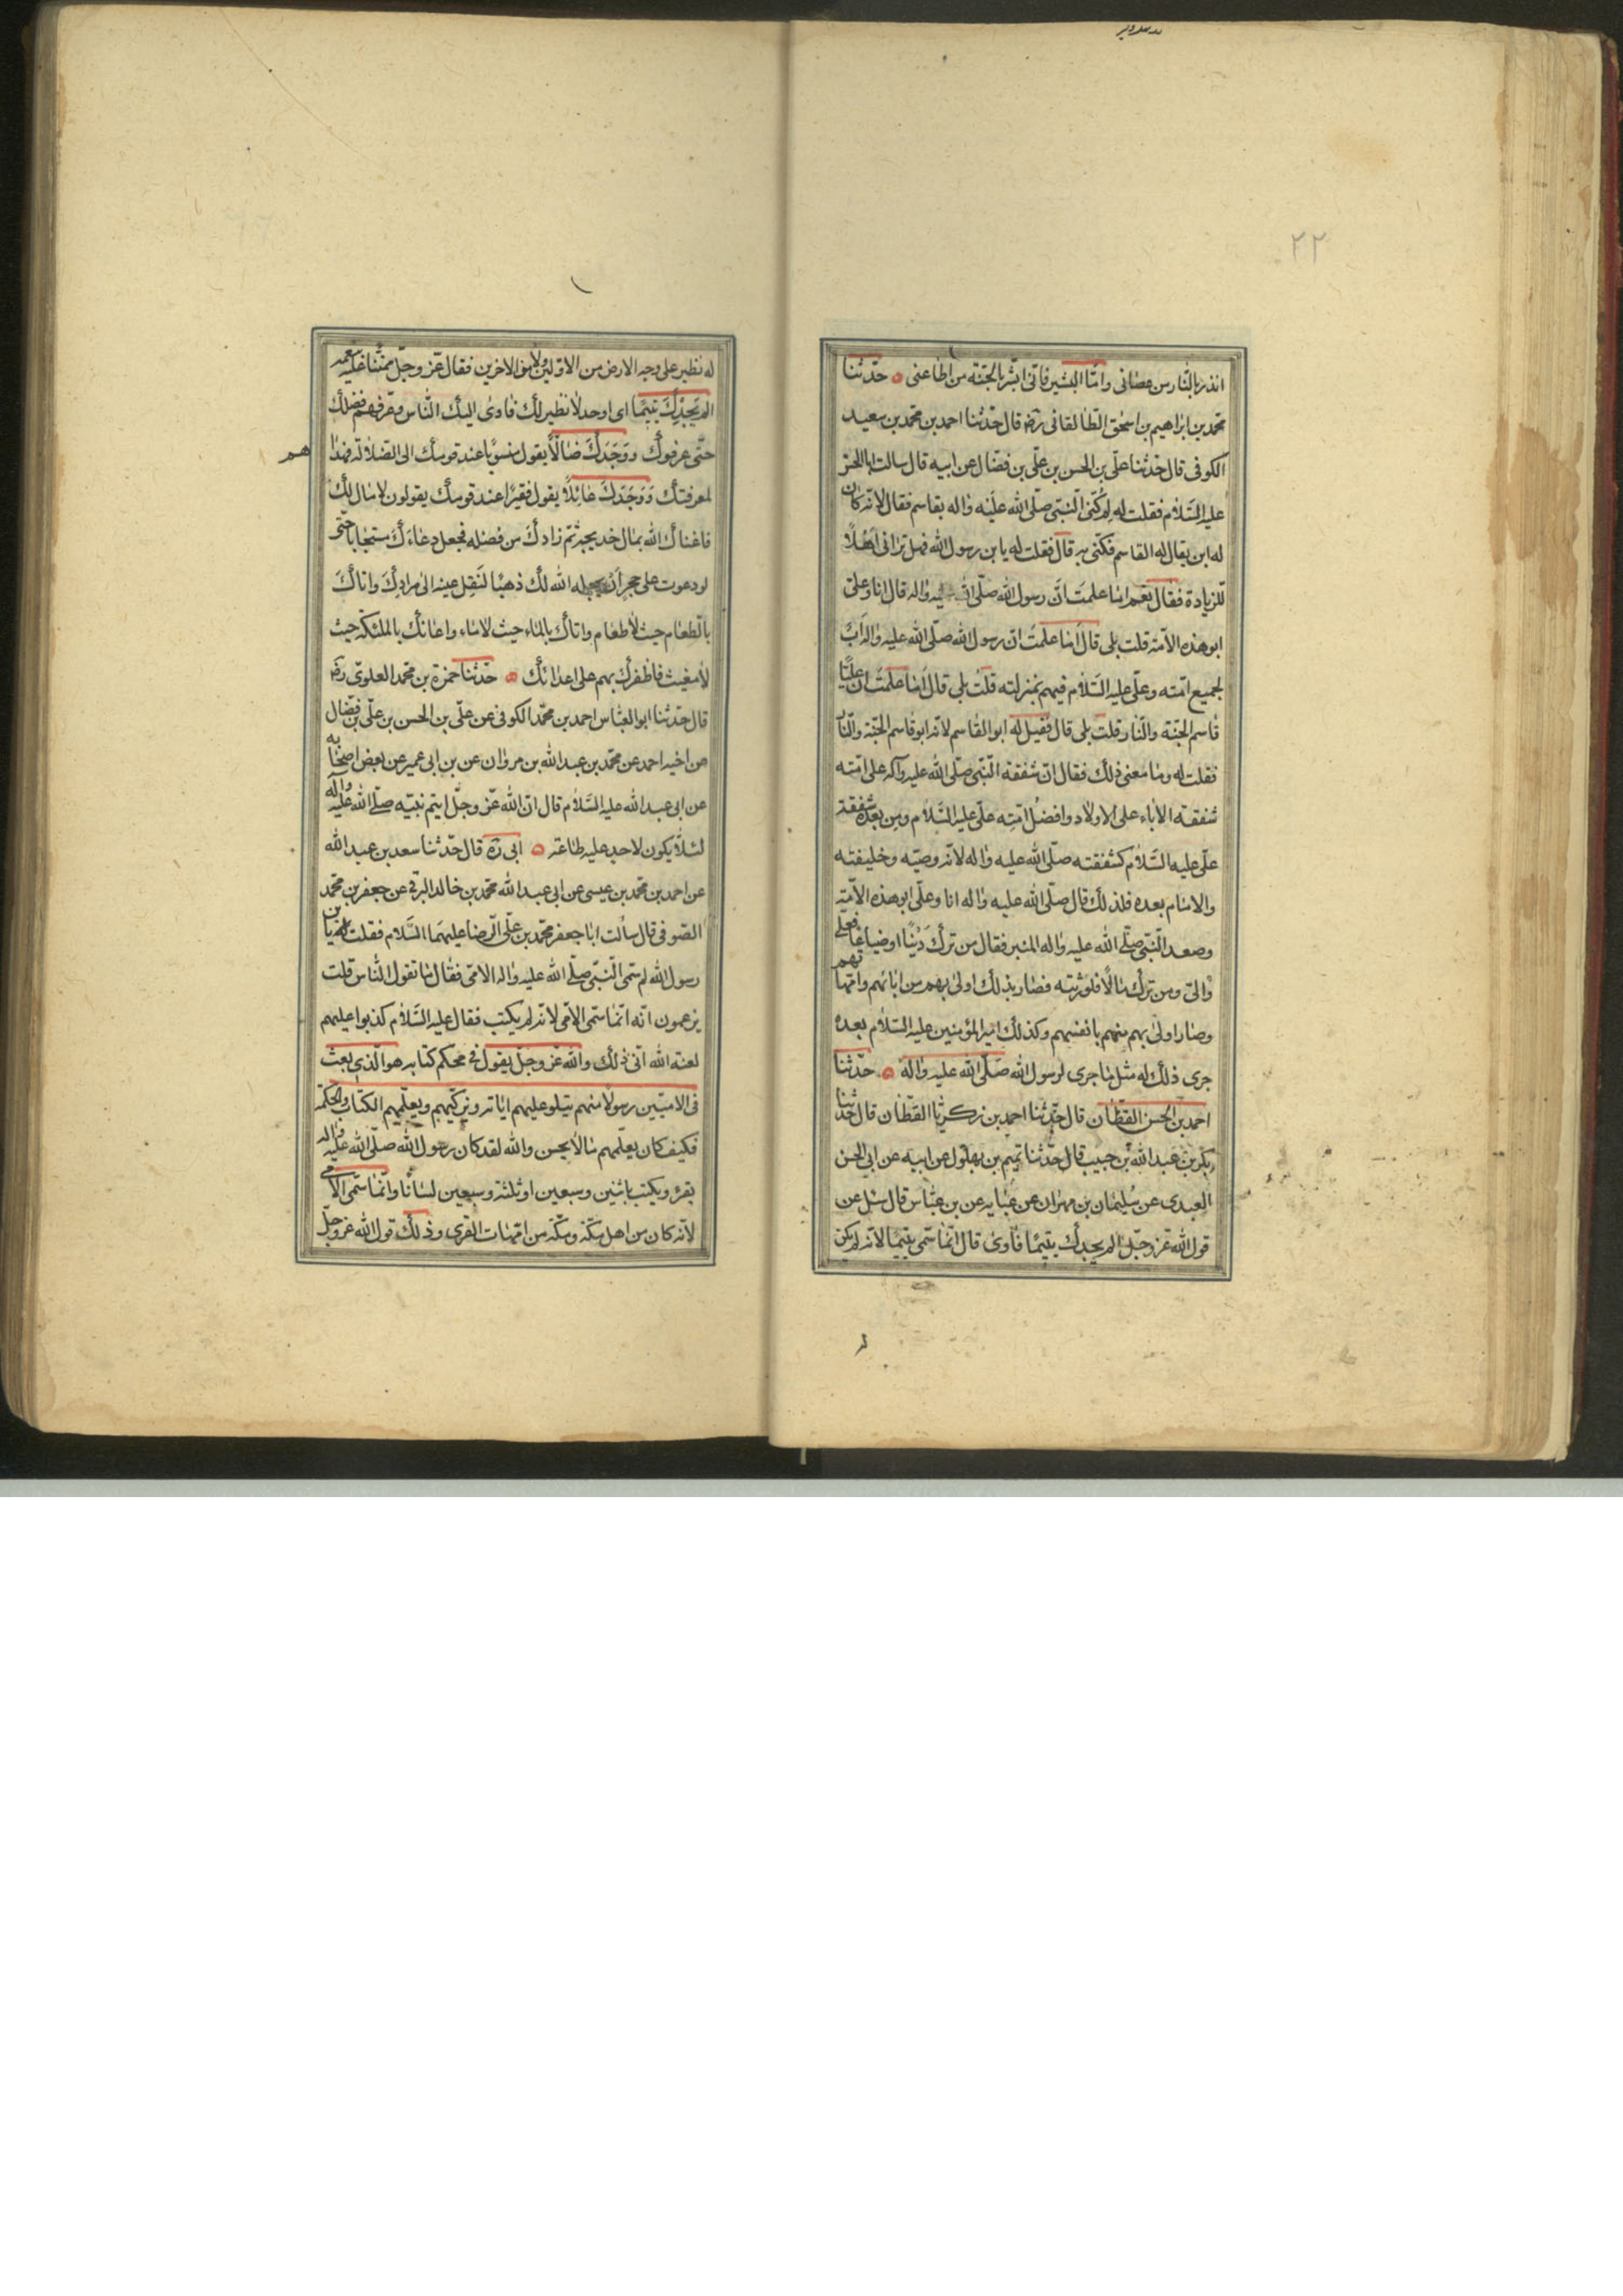 ٢٢
انذر بالنّار من عصانی وامّا البشیر فانّی ابشّر بالجنّة من اطاعنی ه حدّثنا
محمّد بن ابراهیم بن اسحق الطّالقانی رضه قال حدّثنا احمد بن محمّد بن سعید
الکوفی قال حدّثنا علّی بن الحسن بن علّی بن فضّال عن ابیه قال سالت اباالحسن
علیه السّلام فقلت له لم کنّی النّبیّ صلّی الله علیه واله بقاسم فقال لانّه کان
له ابن یقال له القاسم فکنّی به قال فقلت له یا بن رسول الله فهل ترانی اهلاً
للزیادة فقال نعم اما علمت انّ رسول الله صلّی الله علیه واله قال انا وعلی
ابو هذه الامّة قلت بلی قال اما علمت انّ رسول الله صلّی الله علیه واله اب
لجمیع امّته وعلّی علیه السّلام فیهم بمنزلته قلت بلی قال اما علمت ان علیّا
قاسم الجنّة والنّار قلت بلی قال فقیل له ابو القاسم لانّه ابو قاسم الجنّة والنّار
فقلت له وما معنی ذلک فقال انّ شفقة النّبّی صلّی الله علیه وآله علی امّته
شفقة الاباء علی الاولاد وافضل امّته علّی علیه السّلام ومن بعده شفقة
علّی علیه السّلام کشفقته صلّی الله علیه واله لانّه وصیّه وخلیفته
والامام بعده فلذلک قال صلّی الله علیه واله انا وعلّی ابو هذه الامّة
وصعد النّبّی صلّی الله علیه واله المنبر فقال من ترک دَیْنًا اوضیاعًا فعلی
والیّ ومن ترک مالاً فلورثته فصار بذلک اولی بهم من ابائهم وامّهاتهم
وصار اولی بهم منهم بانفسهم وکذلک امیرالمؤمنین علیه السّلام بعده
جری ذلک له مثل ما جری لرسول الله صلّی الله علیه واله ه حدّثنا
احمد بن الحسن القطّان قال حدّثنا احمد بن زکریّا القطّان قال حدّثنا
بکر بن عبد الله بن حبیب قال حدّثنا تمیم بن بهلول عن ابیه عن ابی الحسن
العبدی عن سلیمان بن مهران عن عبایه عن بن عبّاس قال سئل عن
قول الله عزّ وجلّ الم یجدک یتیمًا فاوی قال انّما سمّی یتیمًا لانّه لم یکن
له نظیر علی وجه الارض من الاوّلین ولا من الاخرین فقال عزّ وجلّ ممتنّا علیه نعمه
الم یجدک یتیمًا ای اوحد لا نظیر لک فاوی الیک النّاس وعرّفهم فضلک
حتّی عرفوک ووجدک ضالاًّ یقول منسوبًا عند قومک الی الضلالة فهدا
هم
لمعرفتک ووجدک عائلاً یقول فقیرًا عند قومک یقولون لا مال لک
فاغناک الله بمال خدیجه ثمّ زادک من فضله فجعل دعاءک مستجابا حتّی
لو دعوت علی حجر ان یجعله الله لک ذهبًا لنقل عینه الی مرادک واتاک
بالطّعام حیث لا طعام واتاک بالماء حیث لا ماء واعانک بالملئکة حیث
لا مغیث فاظفرک بهم علی اعدائک ه حدّثنا حمزة بن محمّد العلوّی رضه
قال حدّثنا ابو العبّاس احمد بن محمّد الکوفی عن علّی بن الحسن بن علّی بن فضّال
عن اخیه احمد عن محمّد بن عبد الله بن مروان عن بن ابی عمیر عن بعض اصحابه
عن ابی عبد الله علیه السّلام قال انّ الله عزّ وجلّ ایتم نبیّه صلّی الله علیه واله
لئلاّ یکون لاحد علیه طاعة ه ابی ره قال حدّثنا سعد بن عبد الله
عن احمد بن محمّد بن عیسی عن ابی عبد الله محمّد بن خالد البرقی عن جعفر بن محمّد
الصّوفی قال سألت ابا جعفر محمّد بن علّی الرّضا علیهما السّلام فقلت له یا بن
رسول الله لم سمّی النّبّی صلّی الله علیه واله الامّی فقال ما تقول النّاس قلت
یزعمون انّه انّما سمّی الامّی لانّه لم یکتب فقال علیه السّلام کذبوا علیهم
لعنة الله انّی ذلک والله عزّ وجلّ یقول فی محکم کتابه هو الّذی بعث
فی الامیّین رسولاً منهم یتلو علیهم ایاته ویزکّیهم ویعلّمهم الکتاب والحکمة
فکیف کان یعلّمهم ما لا یحسن والله لقد کان رسول الله صلّی الله علیه واله
یقرء ویکتب باثنین وسبعین او ثلثة وسبعین لسانًا وانّما سمّی الامّی
لانّه کان من اهل مکّة ومکّة من امّهات القری وذلک قول الله عزّ وجلّ